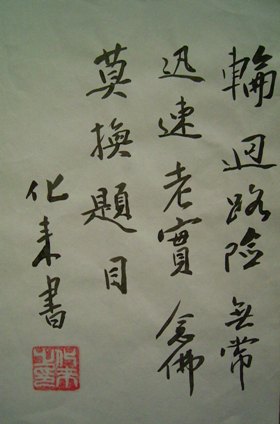 輪迴路險無常
迅速老實念佛
莫換題目
化來書